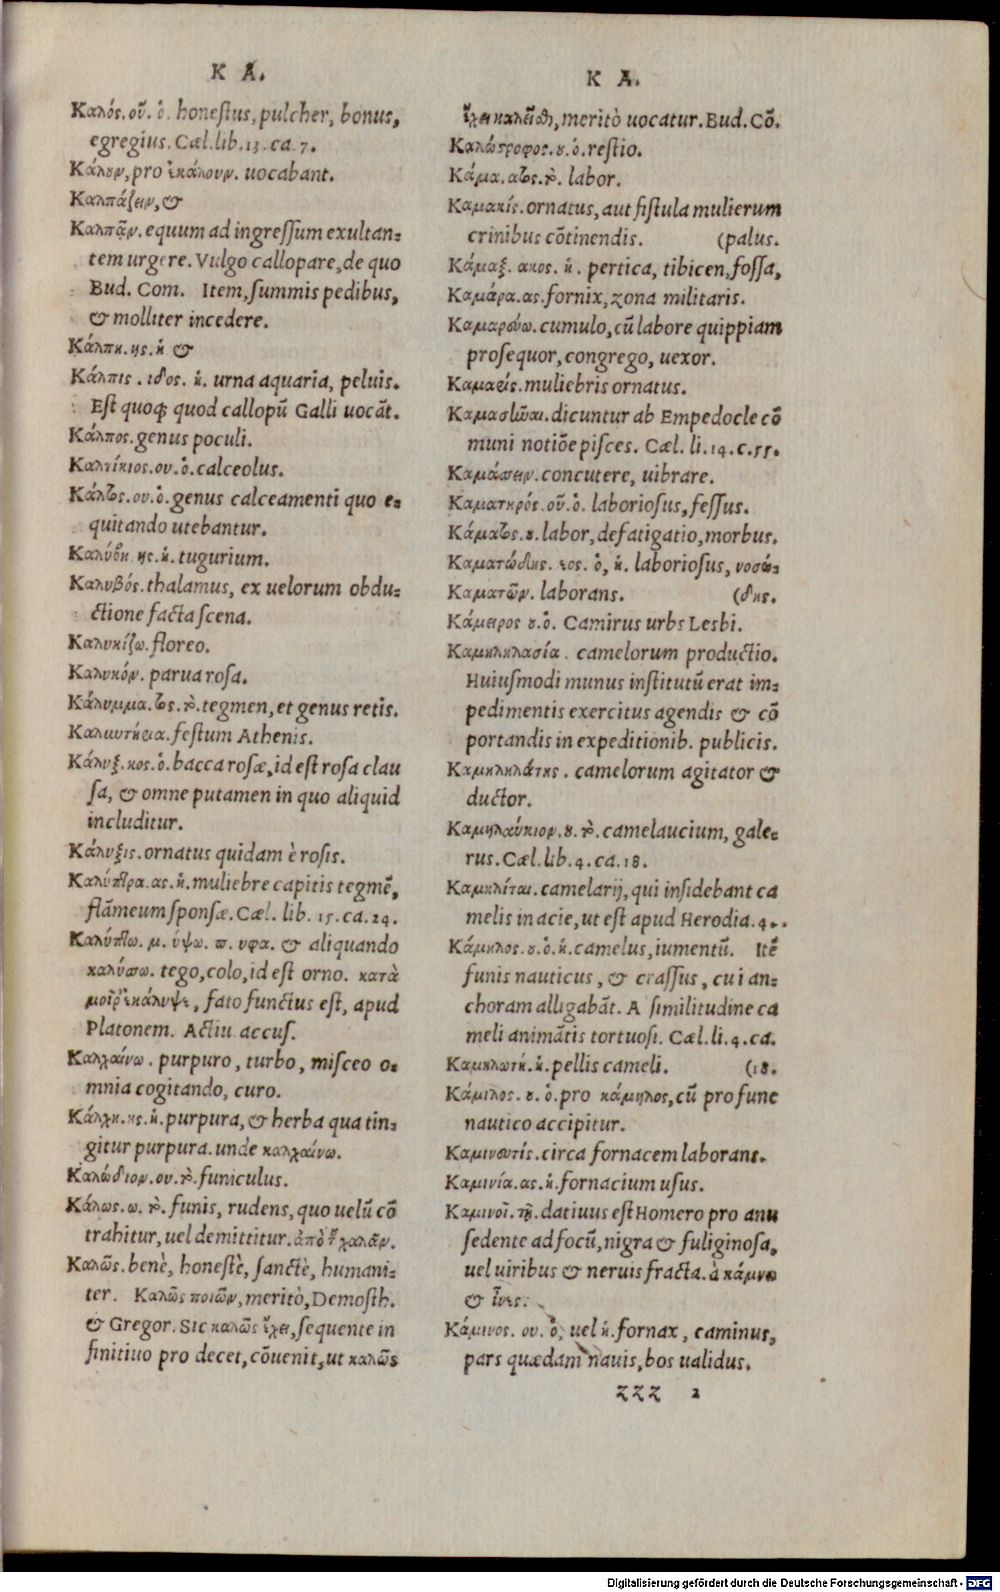 K A.
Καλός. οῦ. ὁ. honeſtus, pulcher, bonus,
egregius. Cæl. lib. 13. ca. 7.
Κάλουν, pro ἐκάλουν. uocabant.
Καλπάζειν, &
Καλπᾶν. equum ad ingreſſum exultan=
tem urgere. Vulgo callopare, de quo
Bud. Com. Item, ſummis pedibus,
& molliter incedere.
Κάλπη. ης. ἡ &
Κάλπις. ιδος. ἡ. urna aquaria, peluis.
Eſt quoq; quod callopū Galli uocāt.
Κάλπος. genus poculi.
Καλτίκιος. ου. ὁ. calceolus.
Κάλτος. ου. ὁ. genus calceamenti quo e=
quitando utebantur.
Καλύβη. ης. ἡ. tugurium.
Καλυβός. thalamus, ex uelorum obdu=
ctione facta ſcena.
Καλυκίζω. floreo.
Καλυκόν. parua roſa.
Κάλυμμα. τος. τὸ. tegmen, et genus retis.
Καλλυτήρια. feſtum Athenis.
Κάλυξ. κος. ὁ. bacca roſæ, id eſt roſa clau
ſa, & omne putamen in quo aliquid
includitur.
Κάλυξις. ornatus quidam è roſis.
Καλύπτρα. ας. ἡ. muliebre capitis tegmē,
flāmeum ſponſæ. Cæl. lib. 15. ca. 24.
Καλύπτω. μ. ύψω. π. υφα. & aliquando
καλύσσω. tego, colo, id eſt orno. κατὰ
μοῖρ' ἐκάλυψε, fato functus eſt, apud
Platonem. Actiu. accuſ.
Καλχαίνω. purpuro, turbo, miſceo o=
mnia cogitando, curo.
Κάλχη. ης. ἡ. purpura, & herba qua tin=
gitur purpura. unde καλχαίνω.
Καλώδιον. ου. τὸ. funiculus.
Κάλως. ω. τὸ. funis, rudens, quo uelū cō
trahitur, uel demittitur. ἀπὸ τοῦ χαλᾶν.
Καλῶς. benè, honeſtè, ſanctè, humani=
ter. Καλῶς ποιῶν, meritò, Demoſth.
& Gregor. Sic καλῶς ἔχει, ſequente in
finitiuo pro decet, cōuenit, ut καλῶς
K A.
ἔχει καλεῖσθαι, meritò uocatur. Bud. Cō.
Καλώστροφος. ου. ὁ. reſtio.
Κάμα. ατος. τὸ. labor.
Καμακίς. ornatus, aut fiſtula mulierum
crinibus cōtinendis. (palus.
Κάμαξ. ακος. ἡ. pertica, tibicen, foſſa,
Καμάρα. ας. fornix, zona militaris.
Καμαρεύω. cumulo, cū labore quippiam
proſequor, congrego, uexor.
Καμαρίς. muliebris ornatus.
Καμασῆναι. dicuntur ab Empedocle cō
muni notiōe piſces. Cæl. li. 14. c. 55.
Καμάσσειν. concutere, uibrare.
Καματηρός. οῦ. ὁ. laborioſus, feſſus.
Κάματος. ου. labor, defatigatio, morbus.
Καματώδης. εος. ὁ, ἡ. laborioſus, νοσώ=
Καματῶν. laborans. (δης.
Κάμειρος ου. ὁ. Camirus urbs Lesbi.
Καμηληλασία. camelorum productio.
Huiuſmodi munus inſtitutū erat im=
pedimentis exercitus agendis & cō
portandis in expeditionib. publicis.
Καμηληλάτης. camelorum agitator &
ductor.
Καμηλαύκιον. ου. τὸ. camelaucium, gale=
rus. Cæl. lib. 4. ca. 18.
Καμηλίται. camelarij, qui inſidebant ca
melis in acie, ut eſt apud Herodia. 4..
Κάμηλος. ου. ὁ. ἡ. camelus, iumentū. Itē
funis nauticus, & craſſus, cui an=
choram alligabāt. A ſimilitudine ca
meli animātis tortuoſi. Cæl. li. 4. ca.
Καμηλωτή. ἡ. pellis cameli. (18.
Κάμιλος. ου. ὁ. pro κάμηλος, cū pro fune
nautico accipitur.
Καμινευτίς. circa fornacem laborans.
Καμινία. ας. ἡ. fornacium uſus.
Καμινοῖ. τῇ. datiuus eſt Homero pro anu
ſedente ad focū, nigra & fuliginoſa,
uel uiribus & neruis fracta. à κάμνω
& ἶνες.
Κάμινος. ου. ὁ, uel ἡ. fornax, caminus,
pars quædam nauis, bos ualidus.
zzz 2
Digitalisierung gefördert durch die Deutsche Forschungsgemeinschaft - DFG